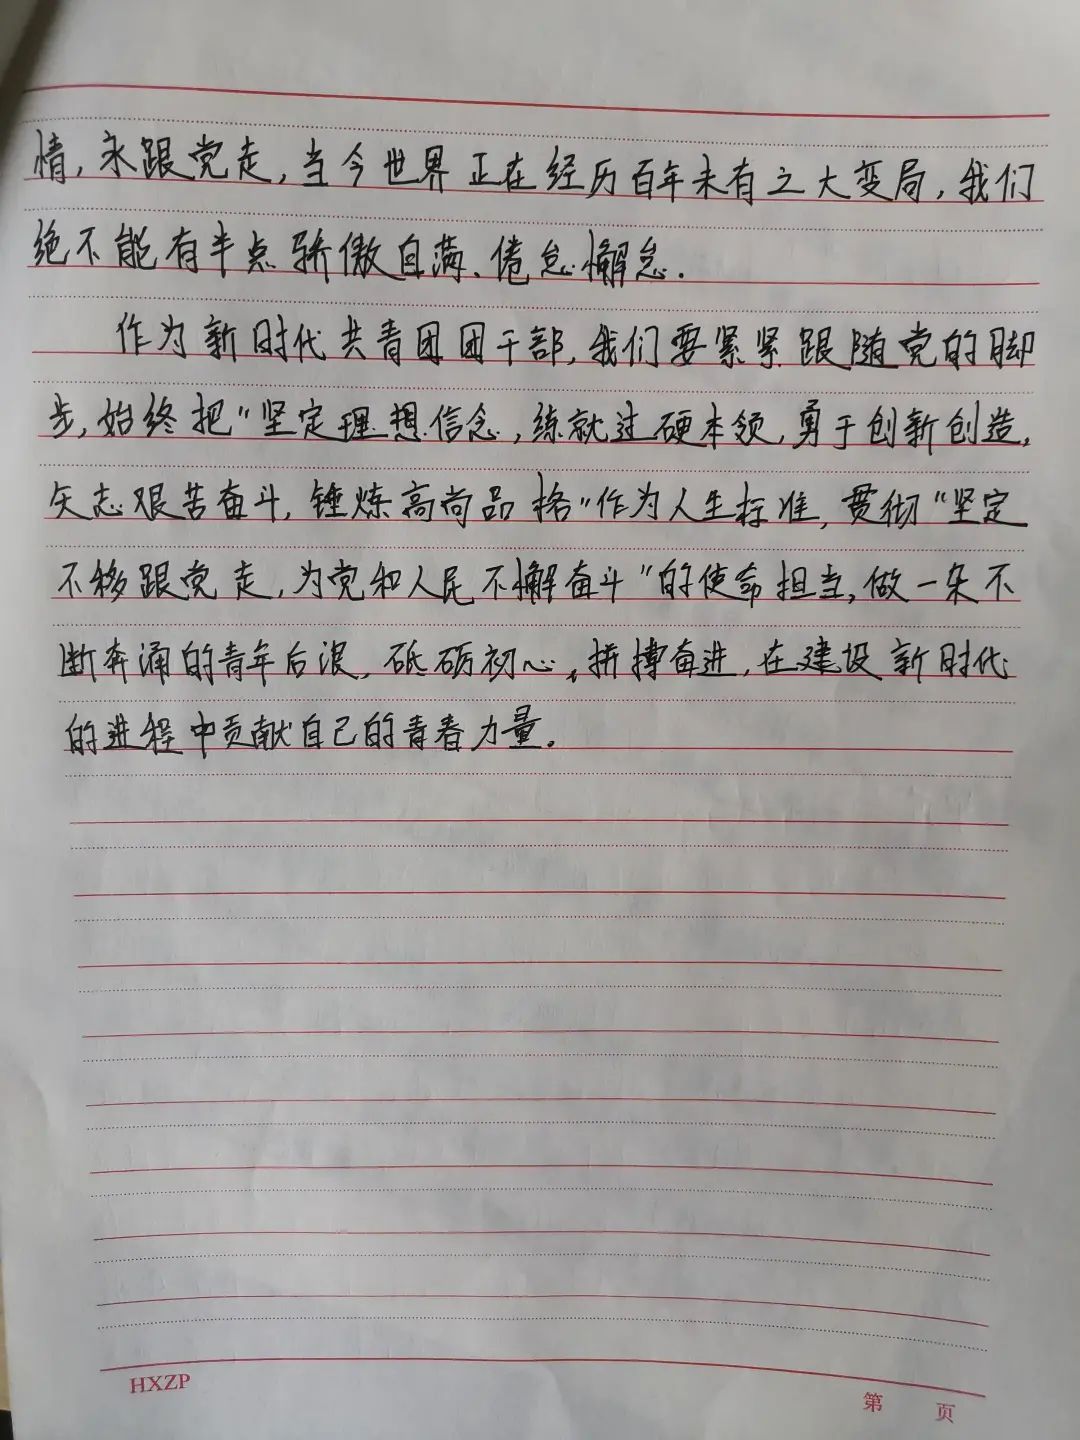 情，永跟党走，当今世界正在经历百年未有之大变局，我们
绝不能有半点骄傲自满、倦怠懈怠.
作为新时代共青团团干部，我们要紧紧跟随党的脚
步，始终把“坚定理想信念，练就过硬本领，勇于创新创造，
矢志艰苦奋斗，锤炼高尚品格”作为人生标准，贯彻“坚定
不移跟党走，为党和人民不懈奋斗”的使命担当，做一朵不
断奔涌的青年后浪，砥砺初心，拼搏奋进，在建设新时代
的进程中贡献自己的青春力量.
HXZP
第 页